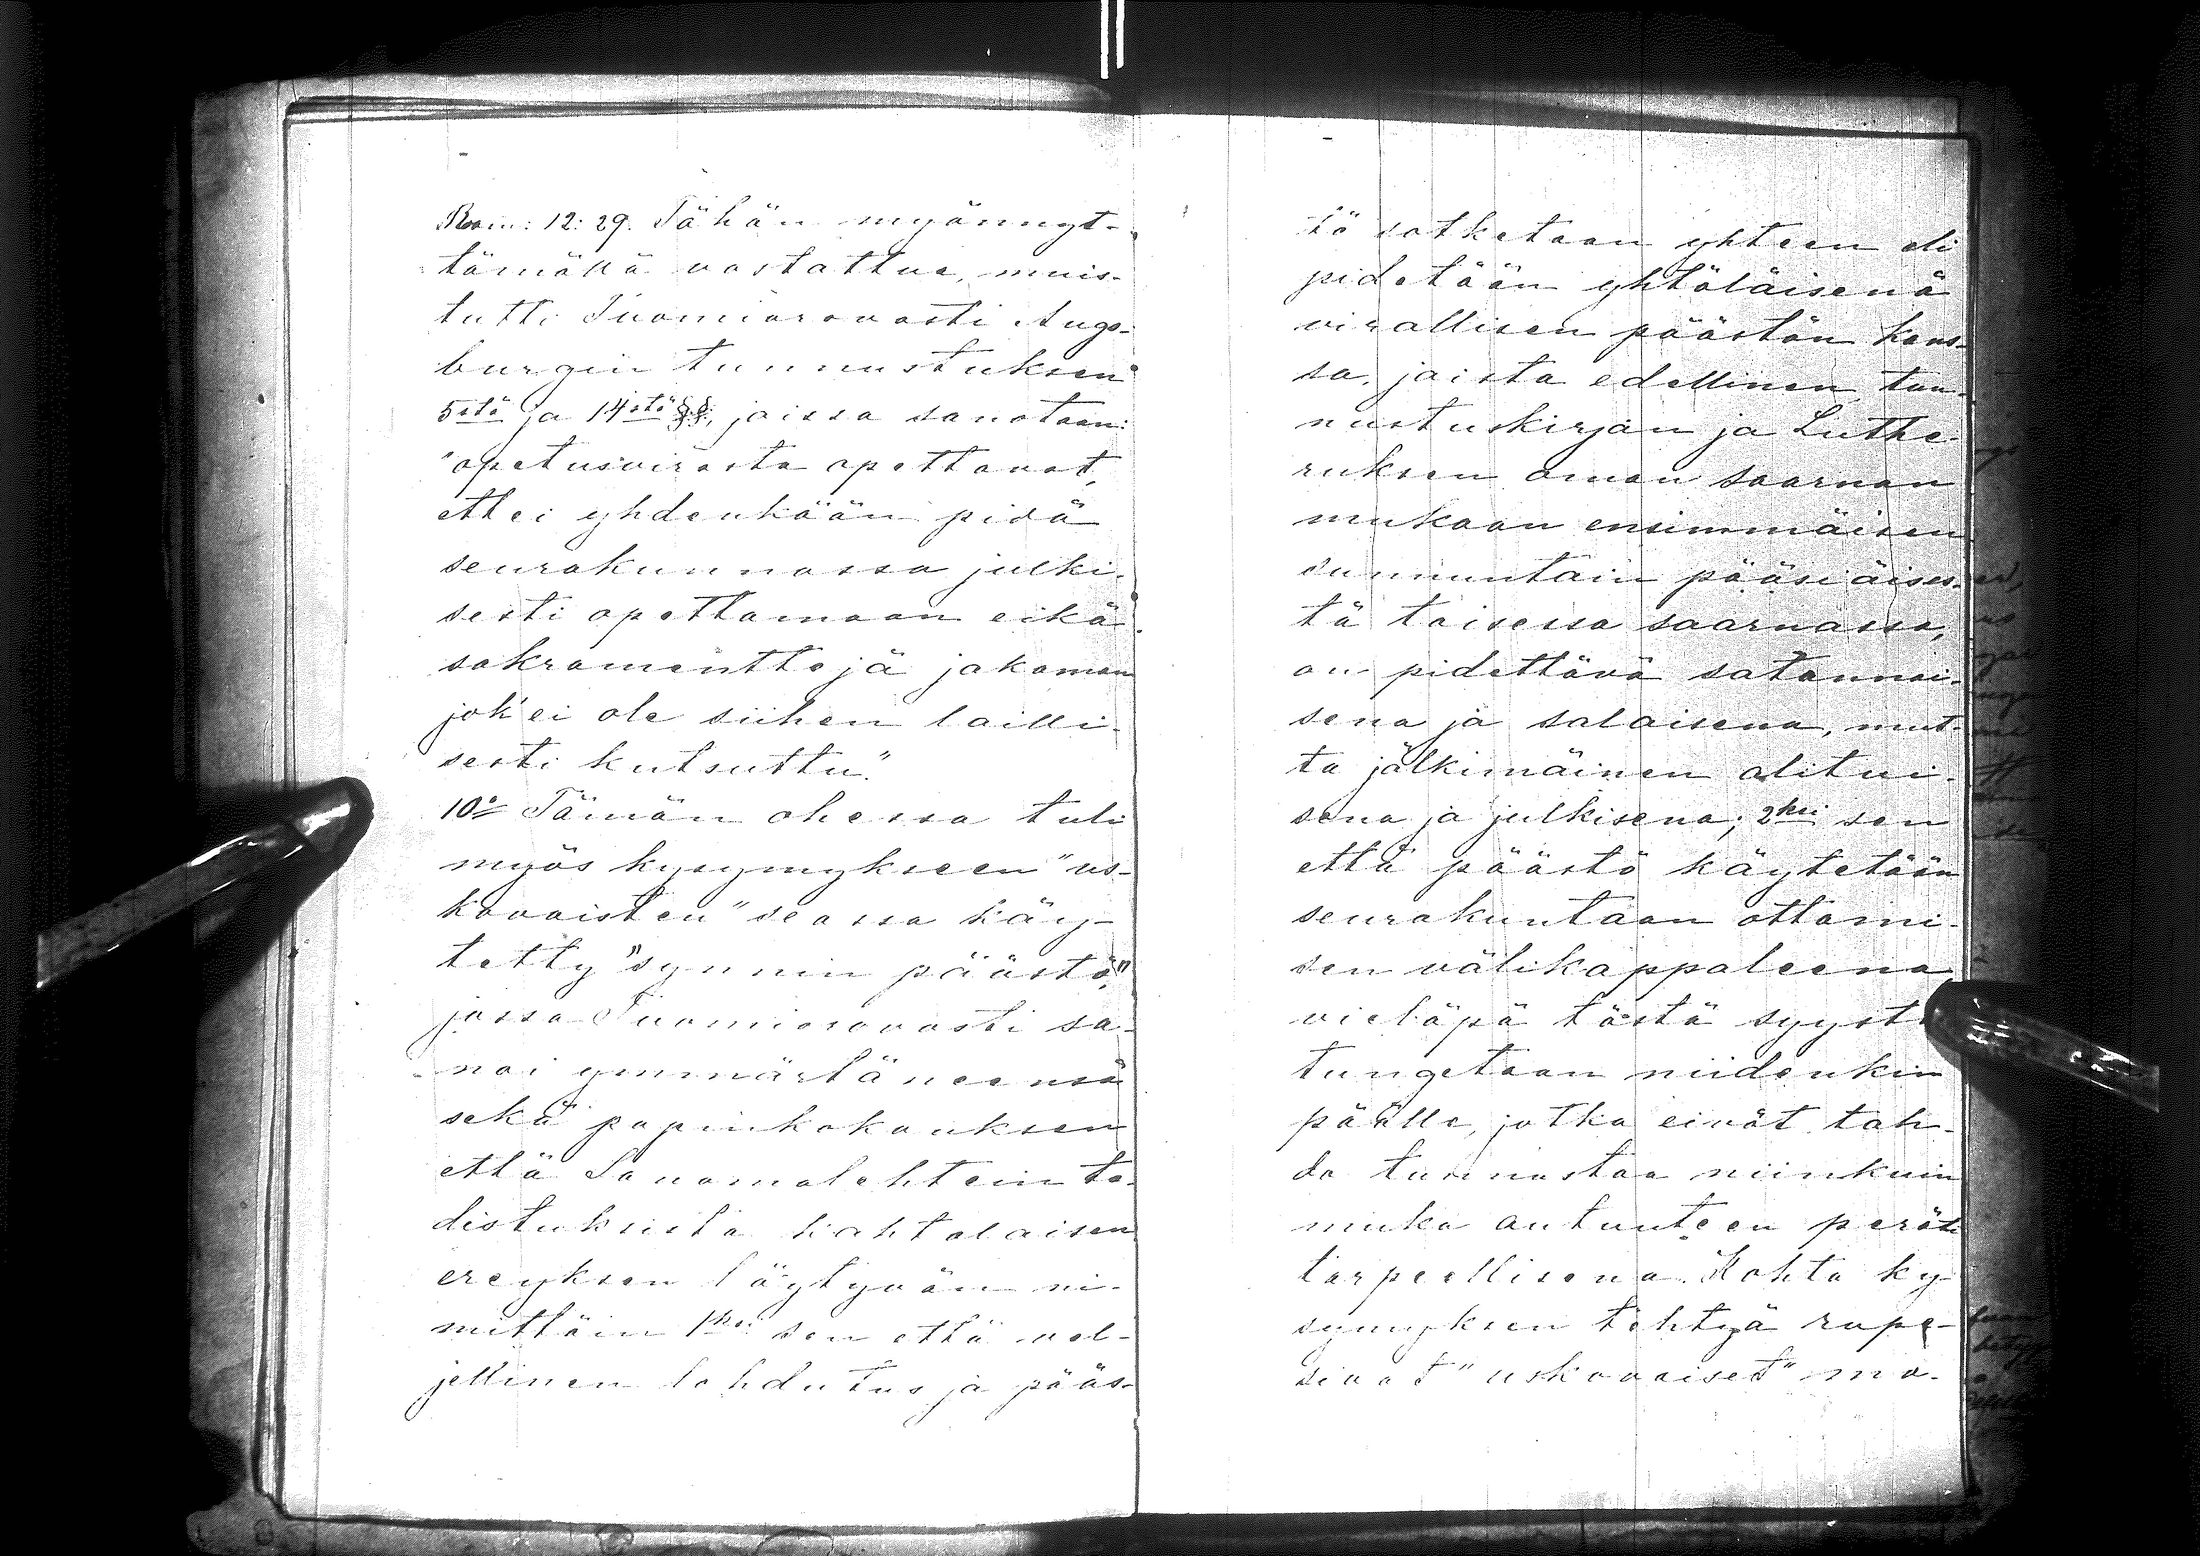 Rom: 12: 29. Tähän myönnyt-
tämällä vastattua, muis-
tutti Tuomiorovasti Augs-
burgin tunnustuksen
5stä ja 14stä §§, joissa sanotaan:
"opetusvirasta opettavat,
ettei yhdenkään pidä
seurakunnassa julki-
sesti opettamaan eikä
sakramenttejä jakaman
jok'ei ole siihen lailli-
sesti kutsuttu."
10o Tämän ohessa tuli
myös kysymykseen "us-
kovaisten" seassa käy-
tetty "synnin päästö,"
jossa Tuomiorovasti sa-
noi ymmärtäneensä
sekä papinkokouksen
että Sanomalehtein to-
distuksista kahtalaisen
ereyksen löytyvän ni-
mittäin 1ksi sen että vel-
jellinen lohdutus ja pääs-
tö sotketaan yhteen eli
pidetään yhtäläisenä
virallisen päästön kans-
sa, joista edellinen, tun-
nustuskirjan ja Luthe-
ruksen oman saarnan
mukaan ensimmäisen
sunnuntain pääsiäises-
tä toisessa saarnassa,
on pidettävä satunnai-
sena ja salaisena, mut-
ta jälkimäinen alitui-
sena ja julkisena; 2ksi sen
että päästö käytetään
seurakuntaan ottami-
sen välikappaleena
vieläpä tästä syystä
tungetaan niidenkin
päälle, jotka eivät tah-
do tunnustaa niinkuin
muka autuuteen peräti
tarpeellisena. Kohta ky-
symyksen tehtyä rupe-
sivat "uskovaiset" mo-